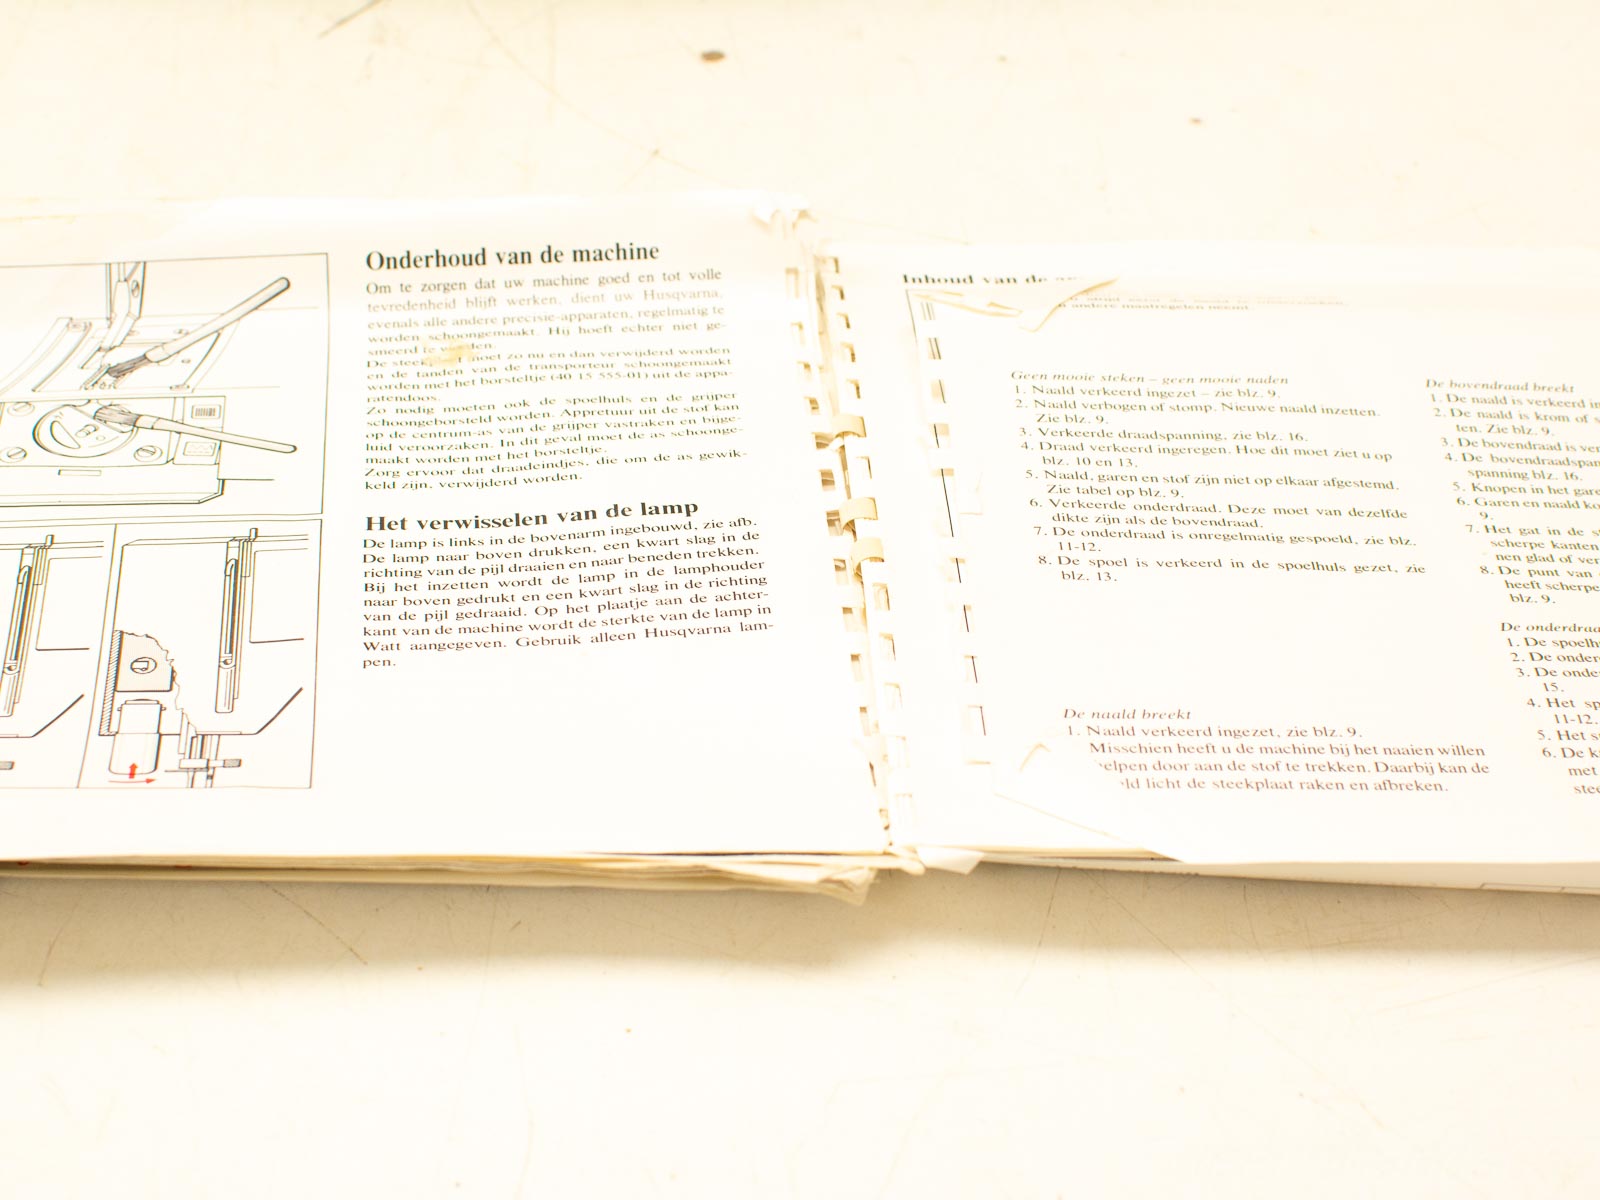 Onderhoud van de machine
Om te zorgen dat uw machine goed en tot volle
tevredenheid blijft werken, dient uw Husqvarna,
evenals alle andere precisie-apparaten, regelmatig te
worden schoongemaakt. Hij hoeft echter niet ge-
smeerd te worden.
De steekplaat moet zo nu en dan verwijderd worden
en de tanden van de transporteur schoongemaakt
worden met het borsteltje (40 15 555-01) uit de appa-
ratendoos.
Zo nodig moeten ook de spoelhuls en de grijper
schoongeborsteld worden. Appretuur uit de stof kan
op de centrum-as van de grijper vastraken en bijge-
luid veroorzaken. In dit geval moet de as schoonge-
maakt worden met het borsteltje.
Zorg ervoor dat draadeindjes, die om de as gewik-
keld zijn, verwijderd worden.
Het verwisselen van de lamp
De lamp is links in de bovenarm ingebouwd, zie afb.
De lamp naar boven drukken, een kwart slag in de
richting van de pijl draaien en naar beneden trekken.
Bij het inzetten wordt de lamp in de lamphouder
naar boven gedrukt en een kwart slag in de richting
van de pijl gedraaid. Op het plaatje aan de achter-
kant van de machine wordt de sterkte van de lamp in
Watt aangegeven. Gebruik alleen Husqvarna lam-
pen.
Inhoud van de
andere maatregelen neemt.
Geen mooie steken – geen mooie naden
1. Naald verkeerd ingezet – zie blz. 9.
2. Naald verbogen of stomp. Nieuwe naald inzetten.
Zie blz. 9.
3. Verkeerde draadspanning, zie blz. 16.
4. Draad verkeerd ingeregen. Hoe dit moet ziet u op
blz. 10 en 13.
5. Naald, garen en stof zijn niet op elkaar afgestemd.
Zie tabel op blz. 9.
6. Verkeerde onderdraad. Deze moet van dezelfde
dikte zijn als de bovendraad.
7. De onderdraad is onregelmatig gespoeld, zie blz.
11-12.
8. De spoel is verkeerd in de spoelhuls gezet, zie
blz. 13.
De naald breekt
1. Naald verkeerd ingezet, zie blz. 9.
Misschien heeft u de machine bij het naaien willen
helpen door aan de stof te trekken. Daarbij kan de
ld licht de steekplaat raken en afbreken.
De bovendraad breekt
1. De naald is verkeerd in
2. De naald is krom of s
ten. Zie blz. 9.
3. De bovendraad is ver
4. De bovendraadspan
spanning blz. 16.
5. Knopen in het gare
6. Garen en naald ko
9.
7. Het gat in de s
scherpe kanten
nen glad of ver
8. De punt van
heeft scherpe
blz. 9.
De onderdraa
1. De spoelh
2. De onder
3. De onde
15.
4. Het sp
11-12.
5. Het s
6. De k
met
stee